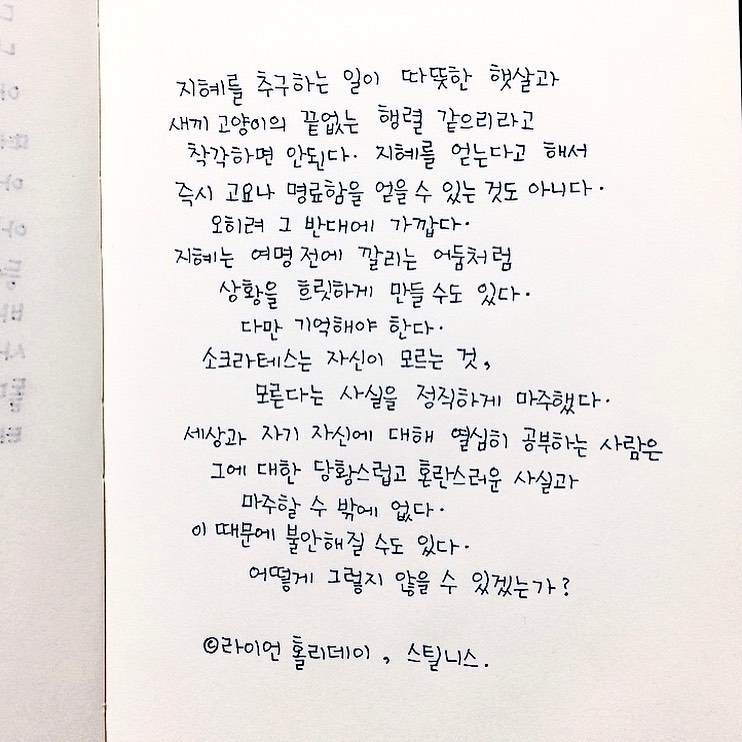 지혜를 추구하는 일이 따뜻한 햇살과
새끼 고양이의 끝없는 행렬 같으리라고
착각하면 안된다. 지혜를 얻는다고 해서
즉시 고요나 명료함을 얻을 수 있는 것도 아니다.
오히려 그 반대에 가깝다.
지혜는 여명 전에 깔리는 어둠처럼
상황을 흐릿하게 만들 수도 있다.
다만 기억해야 한다.
소크라테스는 자신이 모르는 것,
모른다는 사실을 정직하게 마주했다.
세상과 자기 자신에 대해 열심히 공부하는 사람은
그에 대한 당황스럽고 혼란스러운 사실과
마주할 수 밖에 없다.
이 때문에 불안해질 수도 있다.
어떻게 그렇지 않을 수 있겠는가?
©라이언 홀리데이, 스틸니스.